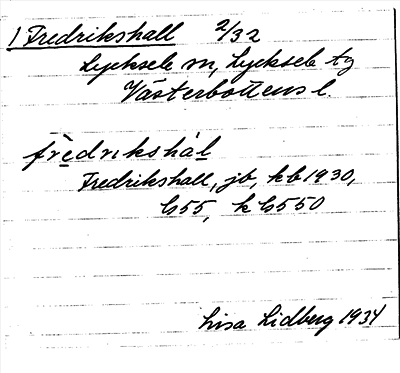 1 Fredrikshall 2/32
Lycksele sn, Lycksele tg
Västerbottens l.
frèdrikshál
Fredrikshall, jb, kb 1930,
k 6550
Lisa Lidberg 1934